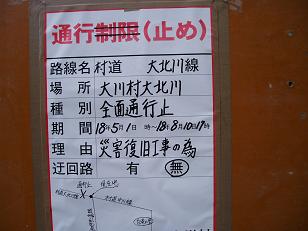 通行制限(止め)
路線名 村道 大北川線
場所 大川村大北川
種別 全面通行止
期間 18年5月1日 時~18年8月10日17時
理由 災害復旧工事の為
迂回路 有 無
通行止
村道中川線